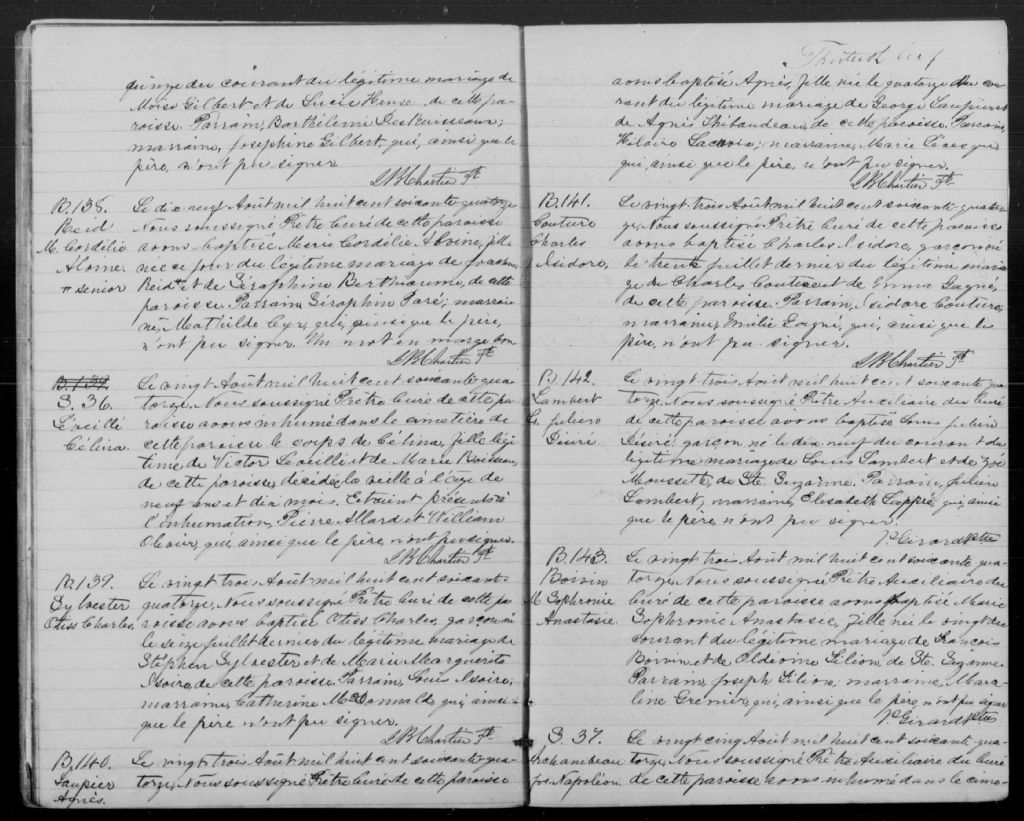 quinze du courant du légitime mariage de
Moïse Gilbert et de Lucie Hense, de cette pa-
roisse. Parrain, Barthélemi DesRuisseaux;
marraine, Josephine Gilbert, qui, ainsi que le
père, n'ont pu signer.
J.B. Chartier Ptre
B. 138.
Reid
M. Cordélie
Alvine.
senior
Le dix neuf Août mil huit cent soixante quatorze
Nous soussigné Prêtre Curé de cette paroisse
avons baptisé Marie Cordélie Alvine, fille
née ce jour du légitime mariage de
Reid et de Séraphine Berthiaume, de cette
paroisse. Parrain, Séraphin Paré; marrai-
ne, Mathilde Cyr, qui, ainsi que le père,
n'ont pu signer. Un mot en marge bon
J.B. Chartier Ptre
B. 139
S. 36.
Léveillé
Célina.
Le vingt Août mil huit cent soixante qua-
torze, Nous soussigné Prêtre Curé de cette pa-
roisse avons inhumé dans le cimetière de
cette paroisse le corps de Célina, fille légi-
time de Victor Léveillé et de Marie Boisseau,
de cette paroisse, décédée la veille à l'âge de
neuf ans et dix mois. Etaient présents à
l'inhumation, Pierre Allard et William
Olivier, qui, ainsi que le père, n'ont pu signer.
J.B. Chartier Ptre
B. 139.
Sylvester
Otiss Charles.
Le vingt trois Août mil huit cent soixante
quatorze, Nous soussigné Prêtre Curé de cette pa-
roisse avons baptisé Otiss Charles, garçon né
le seize juillet dernier du légitime mariage de
Stephen Sylvester et de Marie Marguerite
Isoire, de cette paroisse. Parrain, Louis Isoire;
marraine, Catherine McDonnald, qui, ainsi
que le père n'ont pu signer.
J.B. Chartier Ptre
B. 140.
Saupier
Agnès.
Le vingt trois Août mil huit cent soixante qua-
torze, Nous soussigné Prêtre Curé de cette paroisse
avons baptisé Agnès, fille née le quatorze du cou-
rant du légitime mariage de George Saupier et
de Agnès Thibaudeau, de cette paroisse. Parrain,
Hilaire Lacroix; marraine, Marie
qui, ainsi que le père, n'ont pu signer.
J.B. Chartier Ptre
B. 141.
Couture
Charles
Isidore.
Le vingt trois Août mil huit cent soixante quator-
ze, Nous soussigné Prêtre Curé de cette paroisse
avons baptisé Charles Isidore, garçon né
le trente juillet dernier du légitime maria-
ge de Charles Couture et de Emma Gagné,
de cette paroisse. Parrain, Isidore Couture,
marraine, Emilie Gagné, qui, ainsi que le
père, n'ont pu signer.
J.B. Chartier Ptre
B. 142.
Lambert
Ls. Juliers
Désiré
Le vingt trois Août mil huit cent soixante qua-
torze, Nous soussigné Prêtre Auxiliaire du Curé
de cette paroisse avons baptisé Louis Juliers
Désiré, garçon né le dix neuf du courant du
légitime mariage de Louis Lambert et de Zoé
Moussette, de Ste. Suzanne. Parrain, Juliers
Lambert, marraine, Elisabeth Lippé, qui, ainsi
que le père n'ont pu signer.
Girard Ptre
B. 143.
Boivin
M. Sophronie
Anastasie.
Le vingt trois Août mil huit cent soixante qua-
torze, Nous soussigné Prêtre Auxiliaire du
Curé de cette paroisse avons baptisé Marie
Sophronie Anastasie, fille née le vingt du
courant du légitime mariage de François
Boivin et de Filion, de Ste. Suzanne.
Parrain, Joseph Filion; marraine, Mara-
line Grenier, qui, ainsi que le père, n'ont pu signer
Girard Ptre
S. 37.
Archambeau
Jos. Napoléon.
Le vingt cinq Août mil huit cent soixante qua-
torze, Nous soussigné Prêtre Auxiliaire du Curé
de cette paroisse avons inhumé dans le cime-